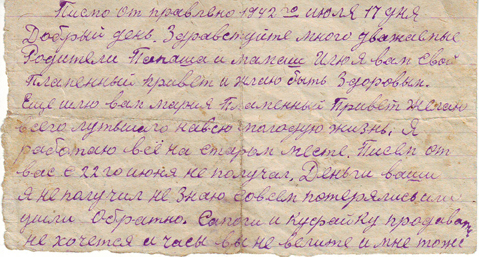 Писмо от правлено 1942 го июля 17 дня
Добрый день. Здравствуйте много уважаемые
Родители Папаша и мамаша Шлю я вам свой
Пламенный привет и жилаю быть Здоровым.
Ещё шлю вам Мария Пламенный Привет желаю
всего лутьшаго навсю молодую жизнь. Я
работаю всё на старом месте. Писем от
вас с 22 го июня не получал, Деньги ваши
я не получил не Знаю совсем потерялись или
ушли Обратно. Сапоги и куфайку продавать
не хочется и часы вы не велите и мне тоже